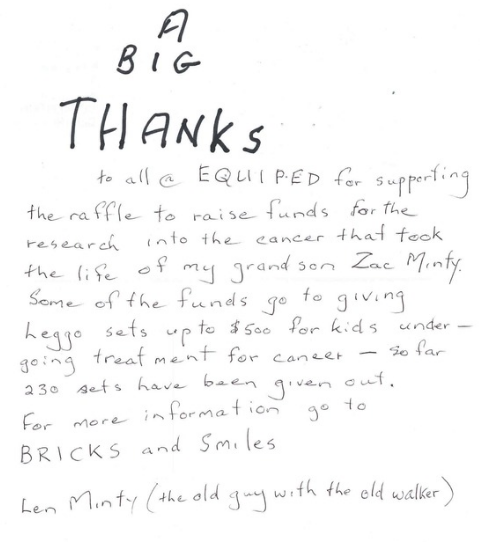 A
BIG
THANKS
to all @ EQUIPED for supporting
the raffle to raise funds for the
research into the cancer that took
the life of my grandson Zac Minty.
Some of the funds go to giving
Leggo sets up to $500 for kids under-
going treatment for cancer - so far
230 sets have been given out.
For more information go to
BRICKS and Smiles
Len Minty (the old guy with the old walker)